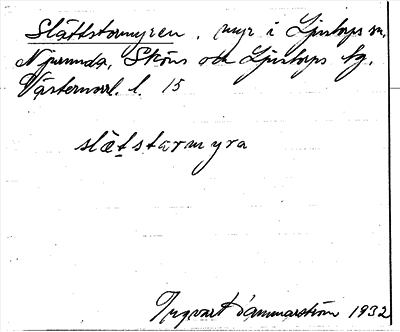 Slåttstormyren, myr i Ljustorps sn,
Njurunda, Sköns och Ljustorps tg,
Västernorrl. l. 15
slåtstarmyra
Ingvart Dammarström 1932